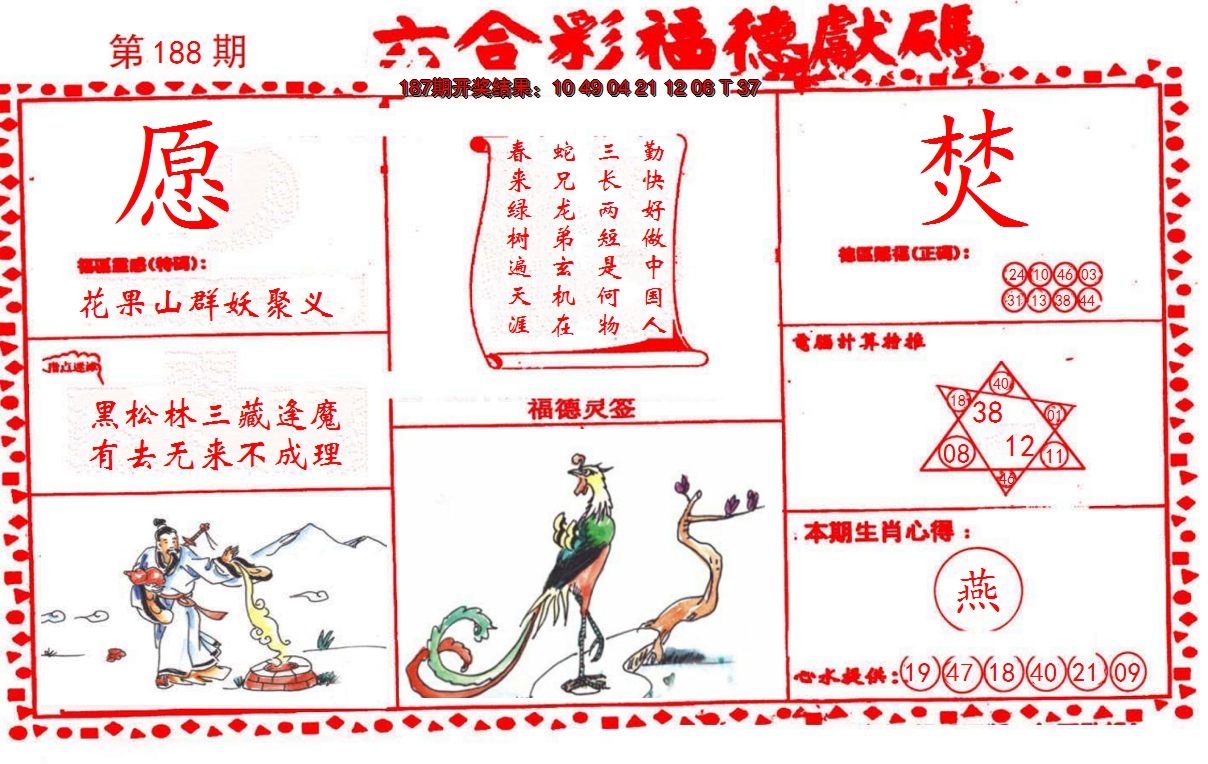 六合彩福德獻碼
第188期
187期开奖结果：10 49 04 21 12 06 T 37
愿
福區靈感(特碼)：
花果山群妖聚义
指点迷津
黑松林三藏逢魔
有去无来不成理
勤快好做中国人
三长两短是何物
蛇兄龙弟玄机在
春来绿树遍天涯
福德灵签
焚
德區賜福(正碼)：
24 10 46 03
31 13 38 44
電腦計算特推
40
18 38 01
08 12 11
46
本期生肖心得：
燕
心水提供：19 47 18 40 21 09